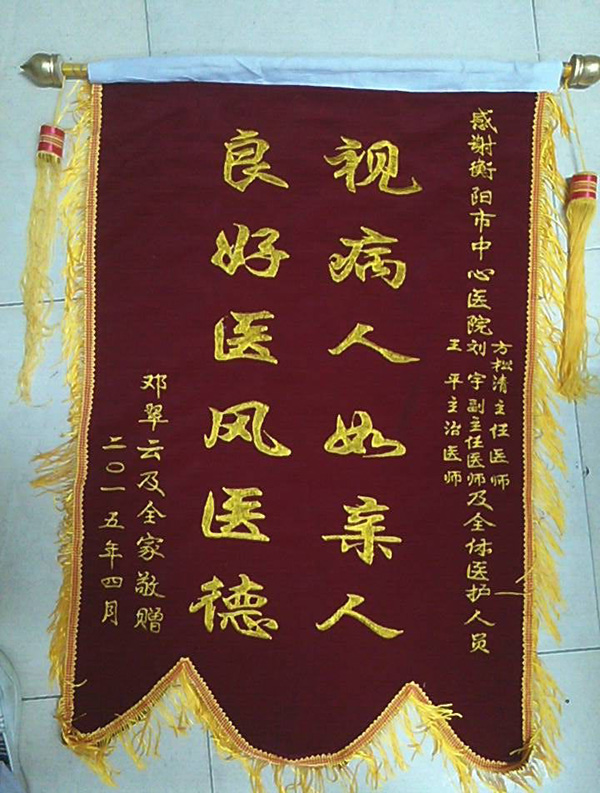 感谢衡阳市中心医院
方松清主任医师
刘宇副主任医师及全体医护人员
王平主治医师
视病人如亲人
良好医风医德
邓翠云及全家敬赠
二〇一五年四月